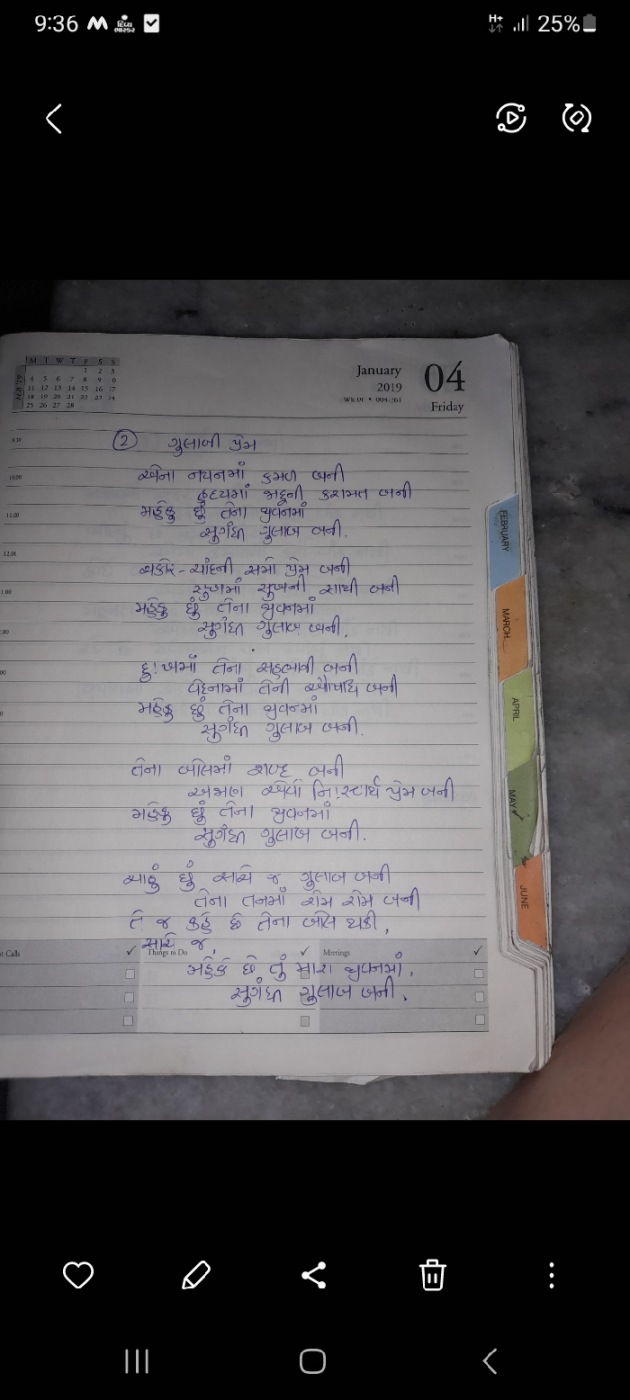 9:36
H+ 25%
M T W T F S S
1 2 3
4 5 6 7 8 9
11 12 13 14 15 16 17
18 19 20 21 22 23 24
25 26 27 28
January 04
2019
Friday
② ગુલાબી પ્રેમ
એના નયનમાં કમળ બની
હૃદયમાં જાદૂની કરામત બની
મહેકુ છું તેના જીવનમાં
સુગંધી ગુલાબ બની.
ચકોર - ચાંદની સમો પ્રેમ બની
સુખમાં સુખની સાથી બની
મહેકુ છું તેના જીવનમાં
સુગંધી ગુલાબ બની.
દુઃખમાં તેના સહભાગી બની
વેદનામાં તેની ઔષધિ બની
મહેકુ છું તેના જીવનમાં
સુગંધી ગુલાબ બની.
તેના બોલમાં શબ્દ બની
એવો નિઃસ્વાર્થ પ્રેમ બની
મહેકુ છું તેના જીવનમાં
સુગંધી ગુલાબ બની.
ચાહું છું સાચે જ ગુલાબ બની
તેના તનમાં રોમ રોમ બની
તે જ કહે છે તેના બોલ થકી,
સાચે જ,
Calls ✓ Things to Do ✓ Meetings ✓
મહેકે છે તું મારા જીવનમાં,
સુગંધી ગુલાબ બની.
FEBRUARY
MARCH
APRIL
MAY
JUNE